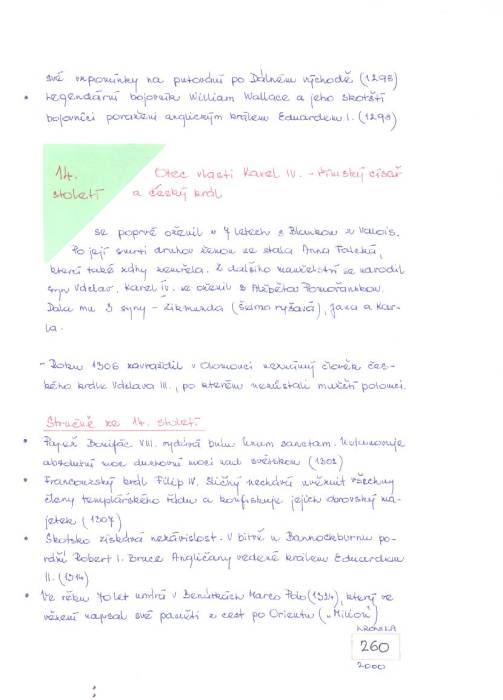 své vzpomínky na putování po Dálném východě (1298)
• Legendární bojovník William Wallace a jeho skotští
bojovníci poraženi anglickým králem Eduardem I. (1298)
14.
století
Otec vlasti Karel IV. – římský císař
a český král
se poprvé oženil v 7 letech s Blankou z Valois.
Po její smrti druhou ženou se stala Anna Falcká,
která také záhy zemřela. Z dalšího manželství se narodil
syn Václav. Karel IV. se oženil s Alžbětou Pomořanskou.
Dala mu 3 syny – Zikmunda (šelma ryšavá), Jana a Kar-
la.
– Roku 1306 zavraždil v Olomouci neznámý člověk čes-
kého krále Václava III., po kterém nezůstali mužští potomci.
Stručně ze 14. století
• Papež Bonifác VIII. vydává bulu Unam sanctam. Ustanovuje
absolutní moc duchovní moci nad světskou (1302)
• Francouzský král Filip IV. Sličný nechává uvěznit všechny
členy templářského řádu a konfiskuje jejich obrovský ma-
jetek (1307)
• Skotsko získává nezávislost. V bitvě u Bannockburnu po-
drží Robert I. Bruce Angličany vedené králem Eduardem
II. (1314)
• Ve věku 70 let umírá v Benátkách Marco Polo (1324), který ve
vězení napsal své paměti z cest po Orientu („Milion")
KRONIKA
260
2000